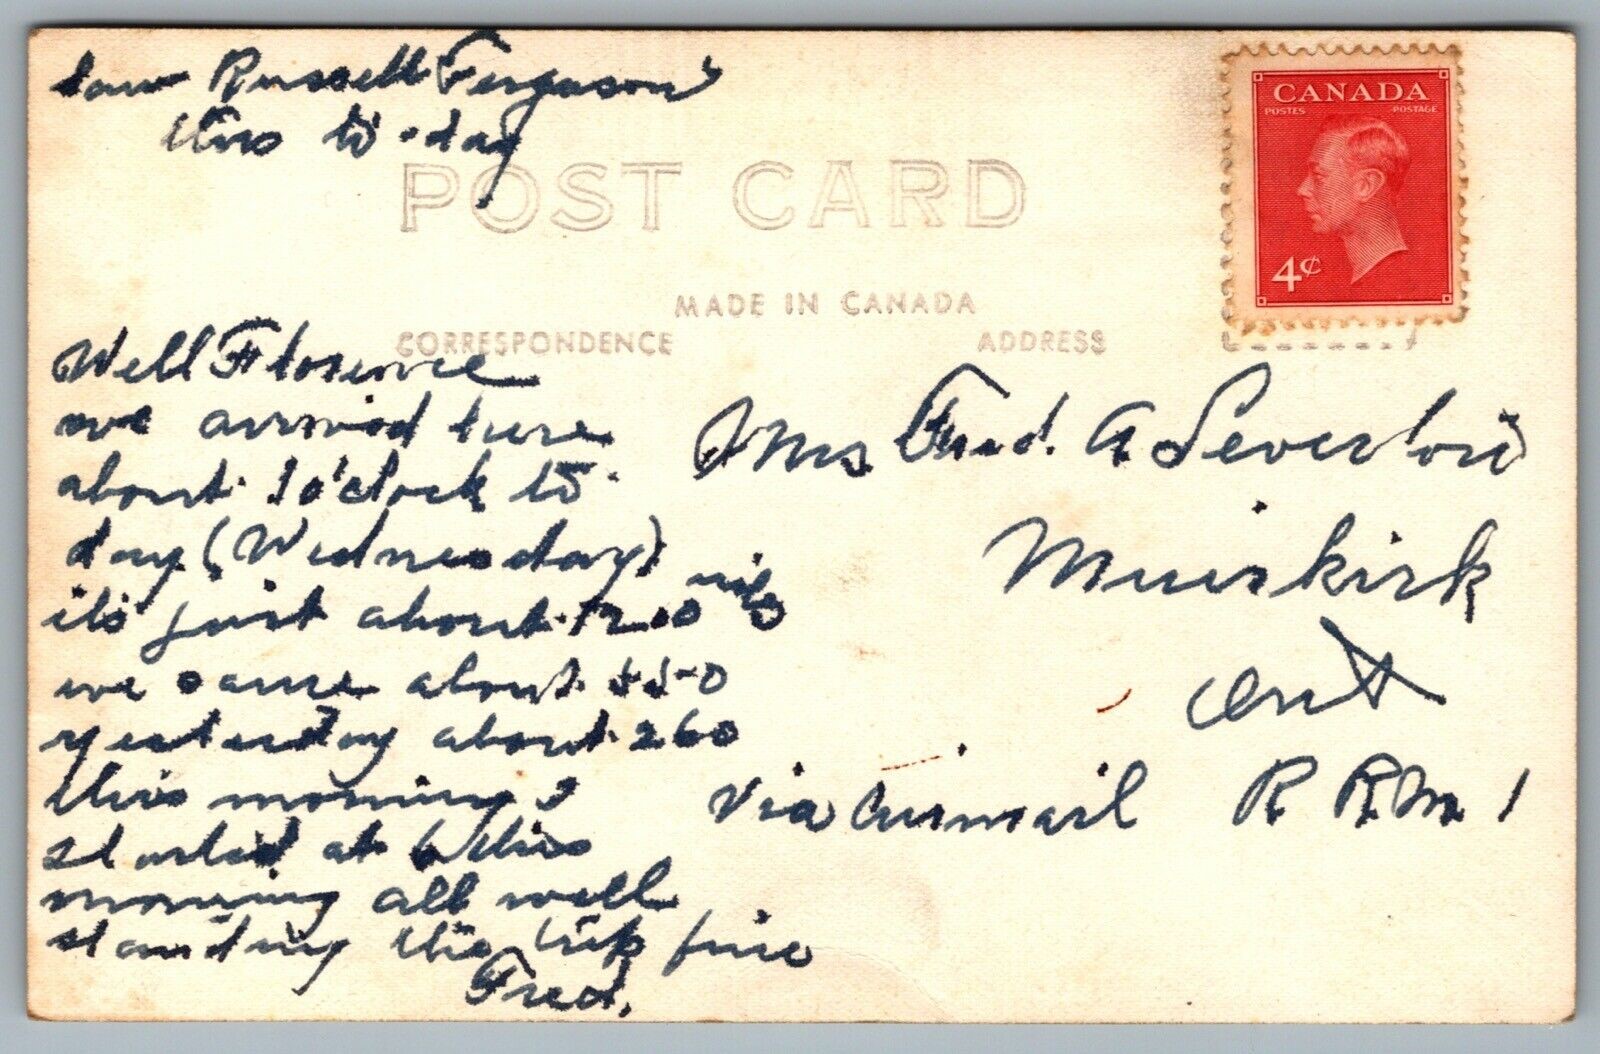 saw Russell Ferguson's
this to-day
POST CARD
CANADA
POSTES POSTAGE
4¢
MADE IN CANADA
CORRESPONDENCE
ADDRESS
Well Florence
we arrived here
about 1 o'clock to
day (Wednesday)
it's just about 1200 mils
we came about 550
yesterday about 260
this morning
started at 6 this
morning all well
standing the trip fine
Fred.
Mrs Fred. A
Muirkirk
Ont
Via Airmail R R No. 1